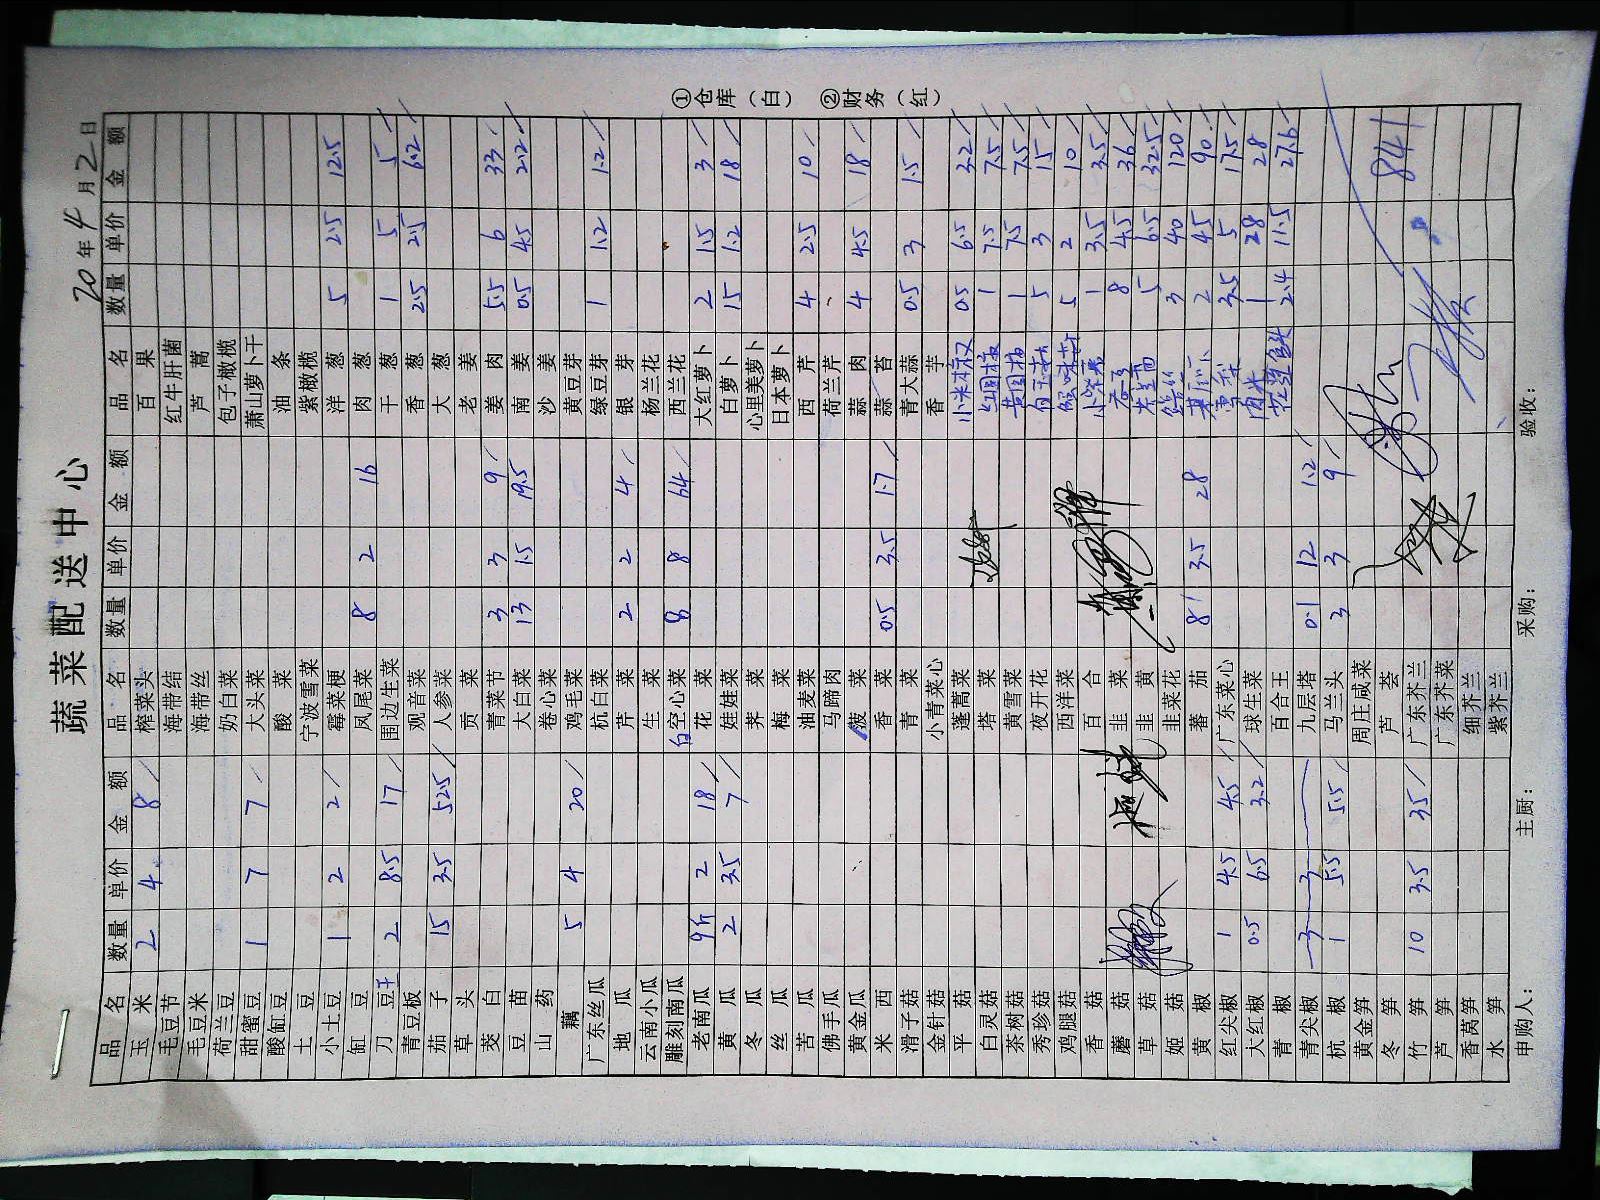 蔬菜配送中心
20 年 4 月 2 日
品名 数量 单价 金额 品名 数量 单价 金额 品名 数量 单价 金额
玉米 2 4 8 榨菜头 百果
毛豆节 海带结 红牛肝菌
毛豆米 海带丝 芦蒿
荷兰豆 奶白菜 包子橄榄
甜蜜豆 1 7 7 大头菜 萧山萝卜干
酸缸豆 酸菜 油条
土豆 宁波雪菜 紫橄榄
小土豆 1 2 2 霉菜梗 洋葱 5 2.5 12.5
缸豆 凤尾菜 8 2 16 肉葱
刀豆 2 8.5 17 围边生菜 干葱 1 5 5
青豆板 观音菜 香葱 2.5 2.5 6.2
茄子 15 3.5 52.5 人参菜 大葱
草头 贡菜 老姜
茭白 青菜节 3 3 9 姜肉 5.5 6 33
豆苗 大白菜 13 1.5 19.5 南姜 0.5 4.5 2.2
山药 卷心菜 沙姜
藕 5 4 20 鸡毛菜 黄豆芽
广东丝瓜 杭白菜 绿豆芽 1 1.2 1.2
地瓜 芹菜 2 2 4 银芽
云南小瓜 生菜 杨兰花
雕刻南瓜 白空心菜 8 8 64 西兰花
老南瓜 9斤 2 18 花菜 大红萝卜 2 1.5 3
黄瓜 2 3.5 7 娃娃菜 白萝卜 15 1.2 18
冬瓜 荠菜 心里美萝卜
丝瓜 梅菜 日本萝卜
苦瓜 油麦菜 西芹 4 2.5 10
佛手瓜 马蹄肉 荷兰芹
黄金瓜 菠菜 蒜肉 4 4.5 18
米西 香菜 0.5 3.5 1.7 蒜苔
滑子菇 青菜 青大蒜 0.5 3 1.5
金针菇 小青菜心 香芋
平菇 蓬蒿菜 小米椒 0.5 6.5 3.2
白灵菇 塔菜 红圆椒 1 7.5 7.5
茶树菇 黄雪菜 黄圆椒 1 7.5 7.5
秀珍菇 夜开花 白玉菇 5 3 15
鸡腿菇 西洋菜 蟹味菇 5 2 10
香菇 百合 1 3.5 3.5
蘑菇 韭菜 8 4.5 36
草菇 韭黄 5 6.5 32.5
姬菇 韭菜花 3 40 120
黄椒 蕃茄 8 3.5 28 2 45 90
红尖椒 1 4.5 4.5 广东菜心 雪梨 3.5 5 17.5
大红椒 0.5 6.5 3.2 球生菜 1 28 28
青椒 百合王 花鲢鱼头 2.4 11.5 27.6
青尖椒 3 3 九层塔 0.1 12 1.2
杭椒 1 5.5 5.5 马兰头 3 3 9
黄金笋 周庄咸菜
冬笋 芦荟 841
竹笋 10 3.5 35 广东芥兰
芦笋 广东芥菜
香莴笋 细芥兰
水笋 紫芥兰
申购人： 主厨： 采购： 验收：
①仓库（白） ②财务（红）